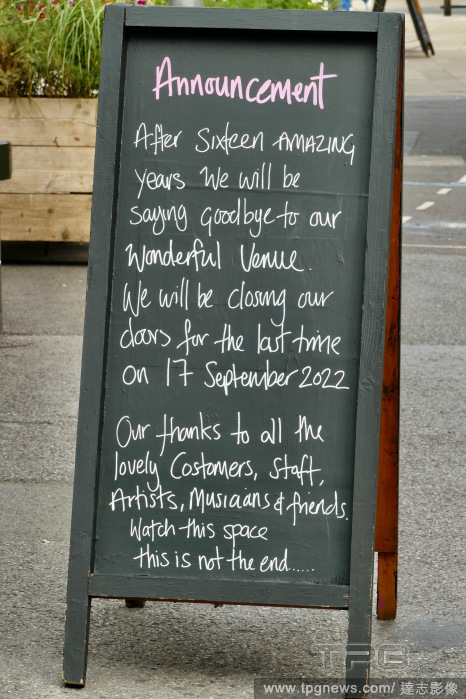 Announcement
After Sixteen AMAZING
years We will be
saying goodbye to our
Wonderful Venue.
We will be closing our
doors for the last time
on 17 September 2022
Our thanks to all the
lovely Costomers, Staff,
Artists, Musicians & friends.
Watch this space
this is not the end......
TPG
www.tpgnews.com/ 達志影像